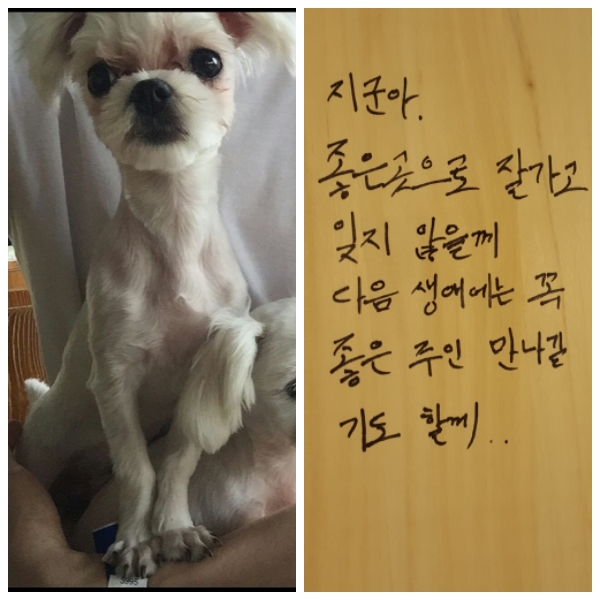 지군아.
좋은곳으로 잘가고
잊지 않을께
다음 생애에는 꼭
좋은 주인 만나길
기도 할께..